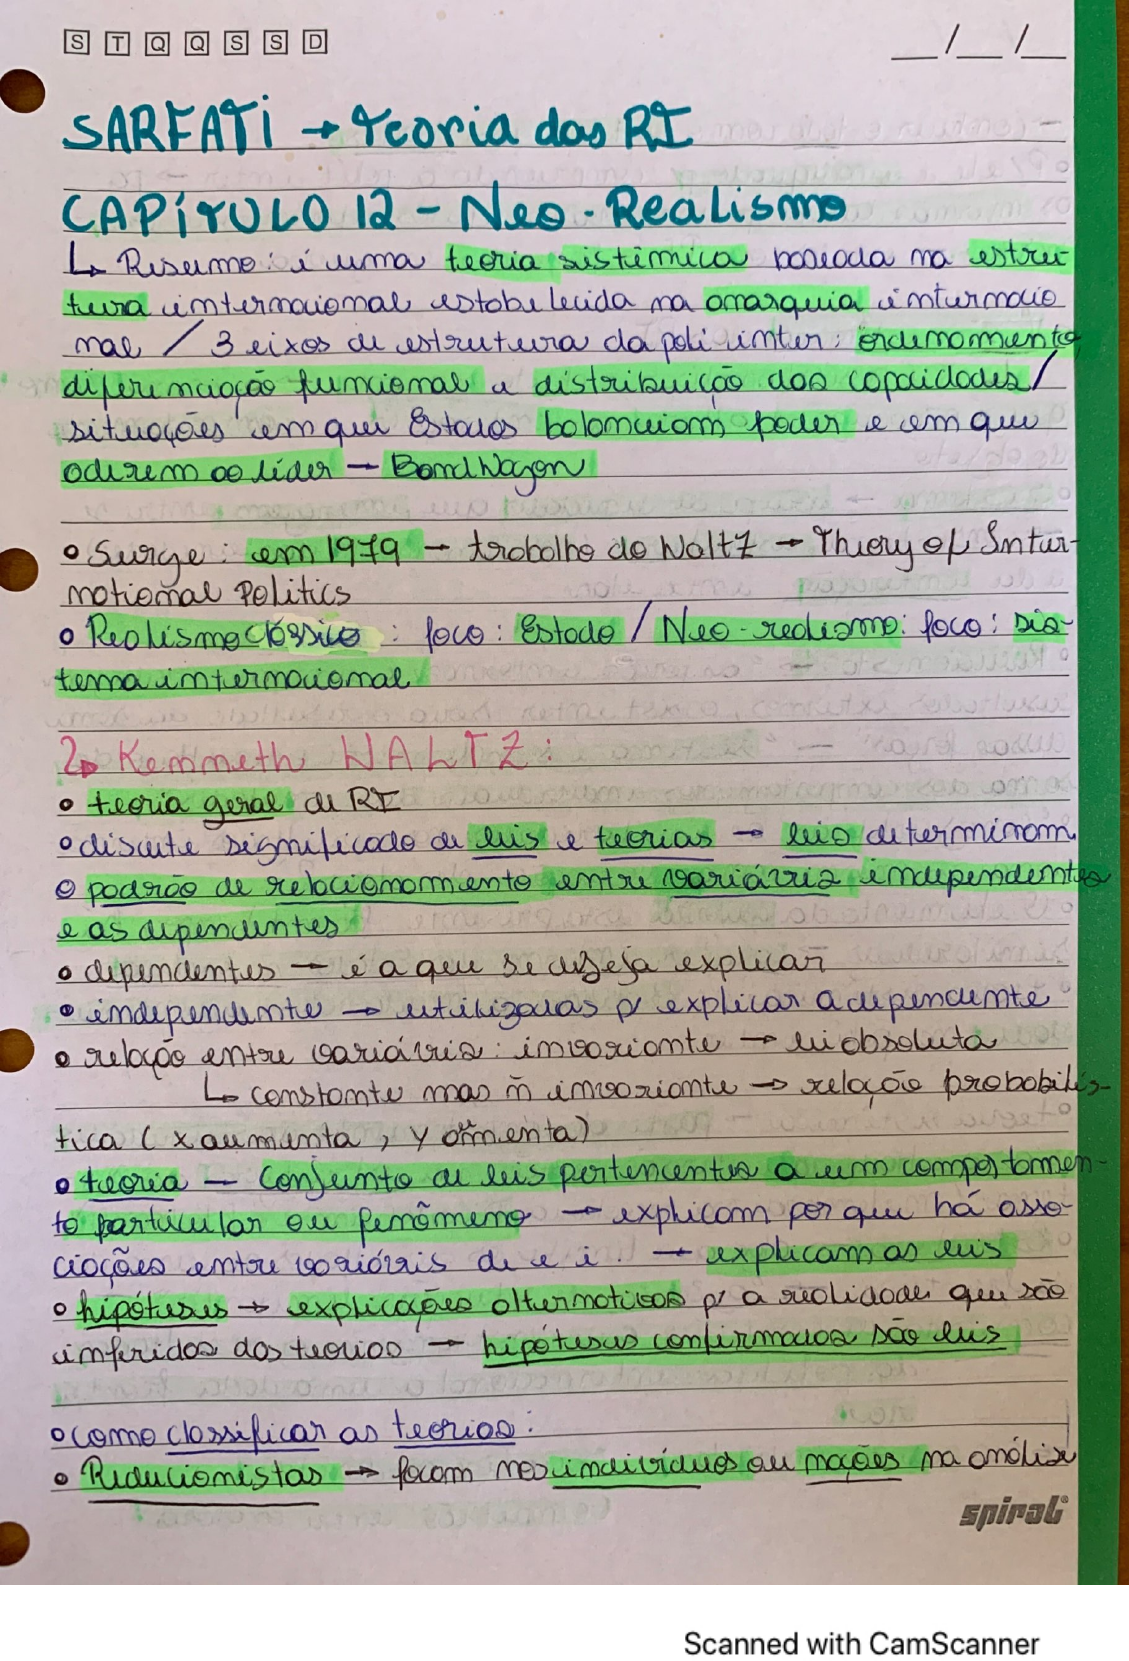 S T Q Q S S D __/__/__
SARFATI → Teoria das RI
CAPÍTULO 12 - Neo-Realismo
↳ Resumo: é uma teoria sistêmica baseada na estru-
tura internacional estabelecida na anarquia internacio
nal / 3 eixos de estrutura da poli inter: ordenamento,
diferenciação funcional e distribuição das capacidades /
situações em que Estados balanceiam poder e em que
aderem ao líder — BandWagon
• Surge: em 1979 → trabalho do Waltz → Theory of Inter-
national Politics
• Realismo clássico: foco: Estado / Neo-realismo: foco: sis-
tema internacional
↳ Kenneth WALTZ:
• teoria geral de RI
• discute significado de leis e teorias → leis determinam
o padrão de relacionamento entre variáveis independentes
e as dependentes
• dependentes → é a que se deseja explicar
• independente → utilizadas p/ explicar a dependente
• relação entre variáveis: invariante → lei absoluta
↳ constante mas ñ invariante → relação probabilís-
tica (x aumenta, y aumenta)
• teoria — conjunto de leis pertencentes a um comportamen-
to particular ou fenômeno → explicam por que há asso-
ciações entre variáveis d e i. → explicam as leis
• hipóteses → explicações alternativas p/ a realidade que são
inferidas das teorias → hipóteses confirmadas são leis
• como classificar as teorias:
• Reducionistas → focam nos indivíduos ou nações na análise
spiral®
Scanned with CamScanner